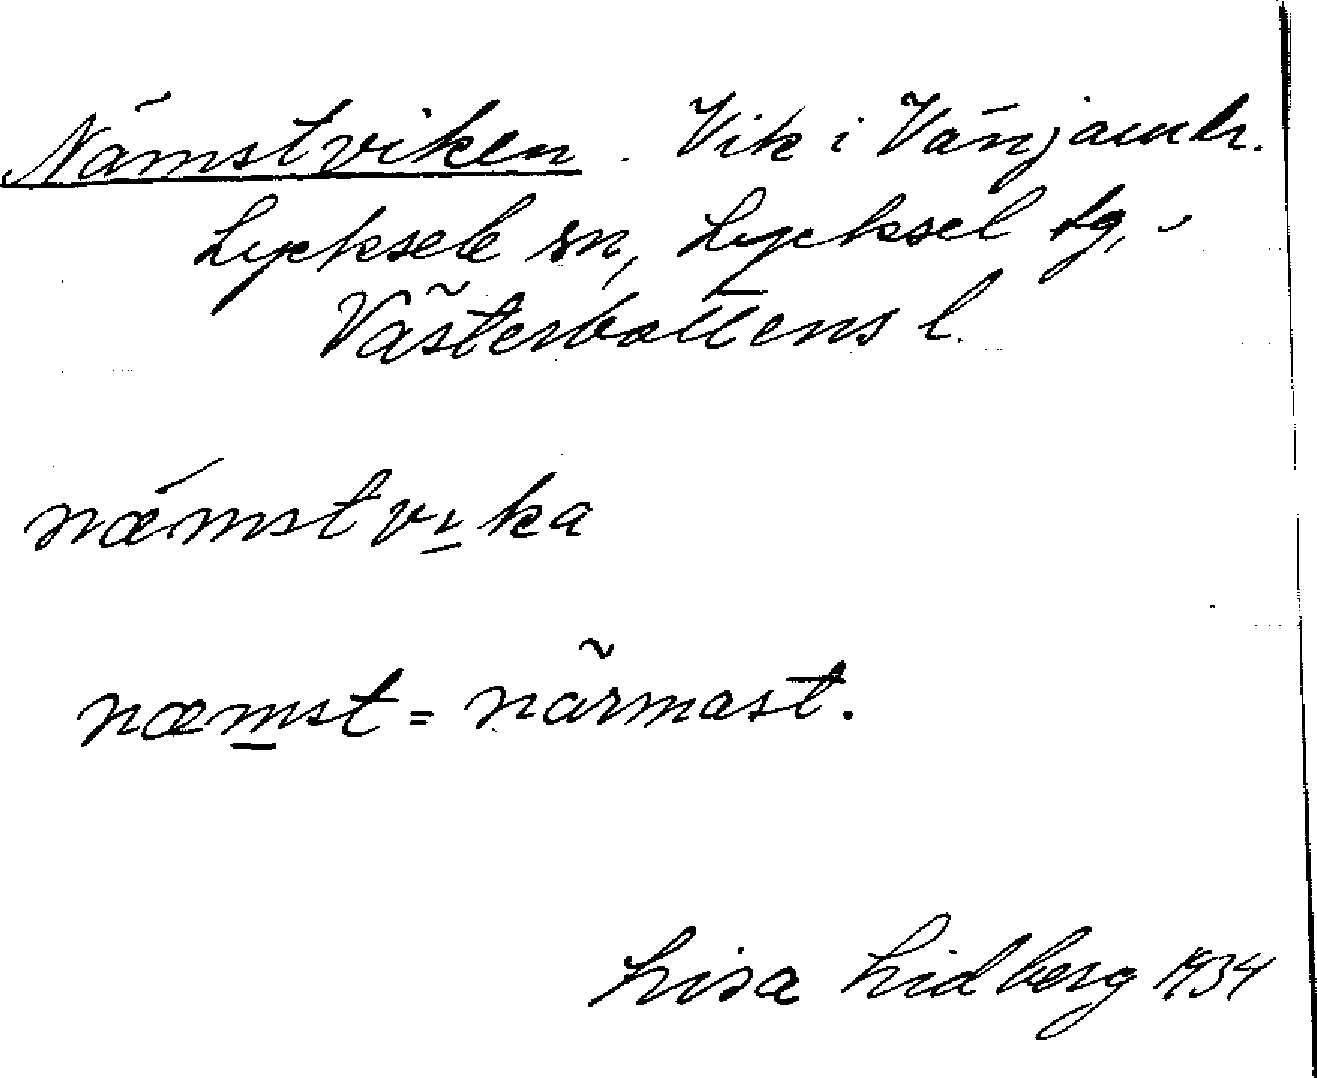 Nämstviken. Vik i Vänjaurtr.
Lycksele sn, Lycksel tg,
Västerbottens l.
næ´mstvıka
næmst = närmast.
Lisa Lidberg 1934